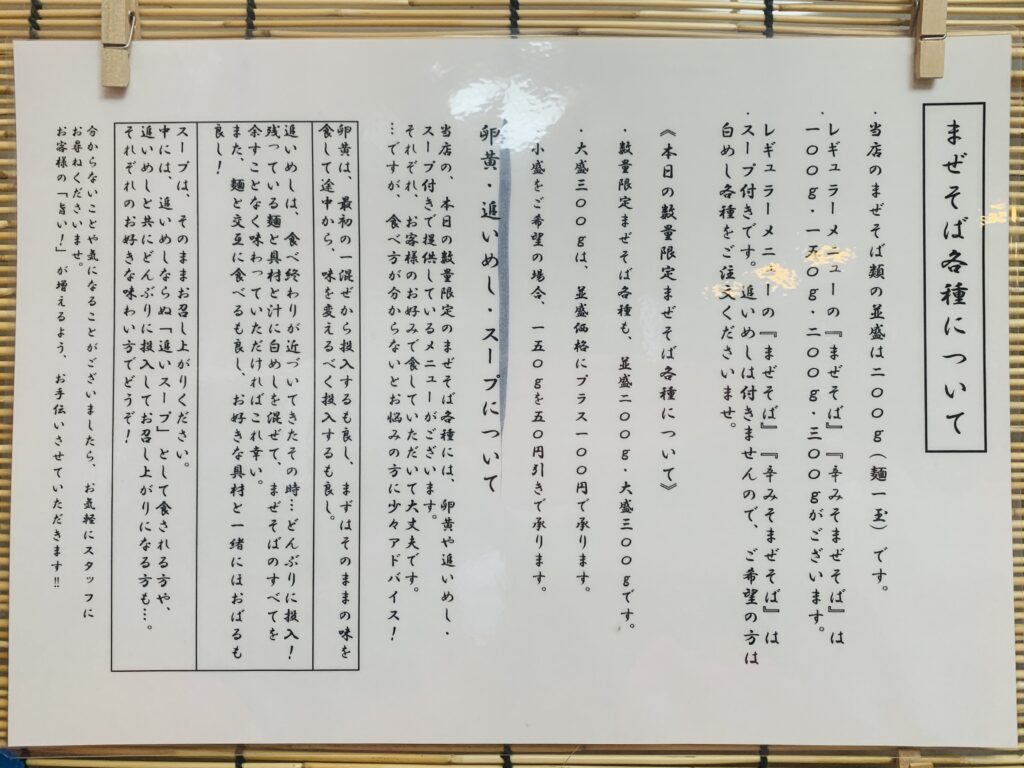 まぜそば各種について
・当店のまぜそば類の並盛は二〇〇g(麺一玉)です。
・レギュラーメニューの『まぜそば』『辛みそまぜそば』は
一〇〇g・一五〇g・二〇〇g・三〇〇gがございます。
レギュラーメニューの『まぜそば』『辛みそまぜそば』は
・スープ付きです。追いめしは付きませんので、ご希望の方は
白めし各種をご注文くださいませ。
《本日の数量限定まぜそば各種について》
・数量限定まぜそば各種も、並盛二〇〇g・大盛三〇〇gです。
・大盛三〇〇gは、並盛価格にプラス一〇〇円で承ります。
小盛をご希望の場合、一五〇gを五〇円引きで承ります。
卵黄・追いめし・スープについて
当店の、本日の数量限定のまぜそば各種には、卵黄や追いめし・
スープ付きで提供しているメニューがございます。
それぞれ、お客様のお好みで食していただいて大丈夫です。
…ですが、食べ方が分からないとお悩みの方に少々アドバイス!
卵黄は、最初の一混ぜから投入するも良し、まずはそのままの味を
食して途中から、味を変えるべく投入するも良し。
追いめしは、食べ終わりが近づいてきたその時…どんぶりに投入!
残っている麺と具材と汁に白めしを混ぜて、まぜそばのすべてを
余すことなく味わっていただければこれ幸い。
また、麺と交互に食べるも良し、お好きな具材と一緒にほおばるも
良し!
スープは、そのままお召し上がりください。
中には、追いめしならぬ「追いスープ」として食される方や、
追いめしと共にどんぶりに投入してお召し上がりになる方も…。
それぞれのお好きな味わい方でどうぞ!
分からないことや気になることがございましたら、お気軽にスタッフに
お尋ねくださいませ。
お客様の「旨い!」が増えるよう、お手伝いさせていただきます!!